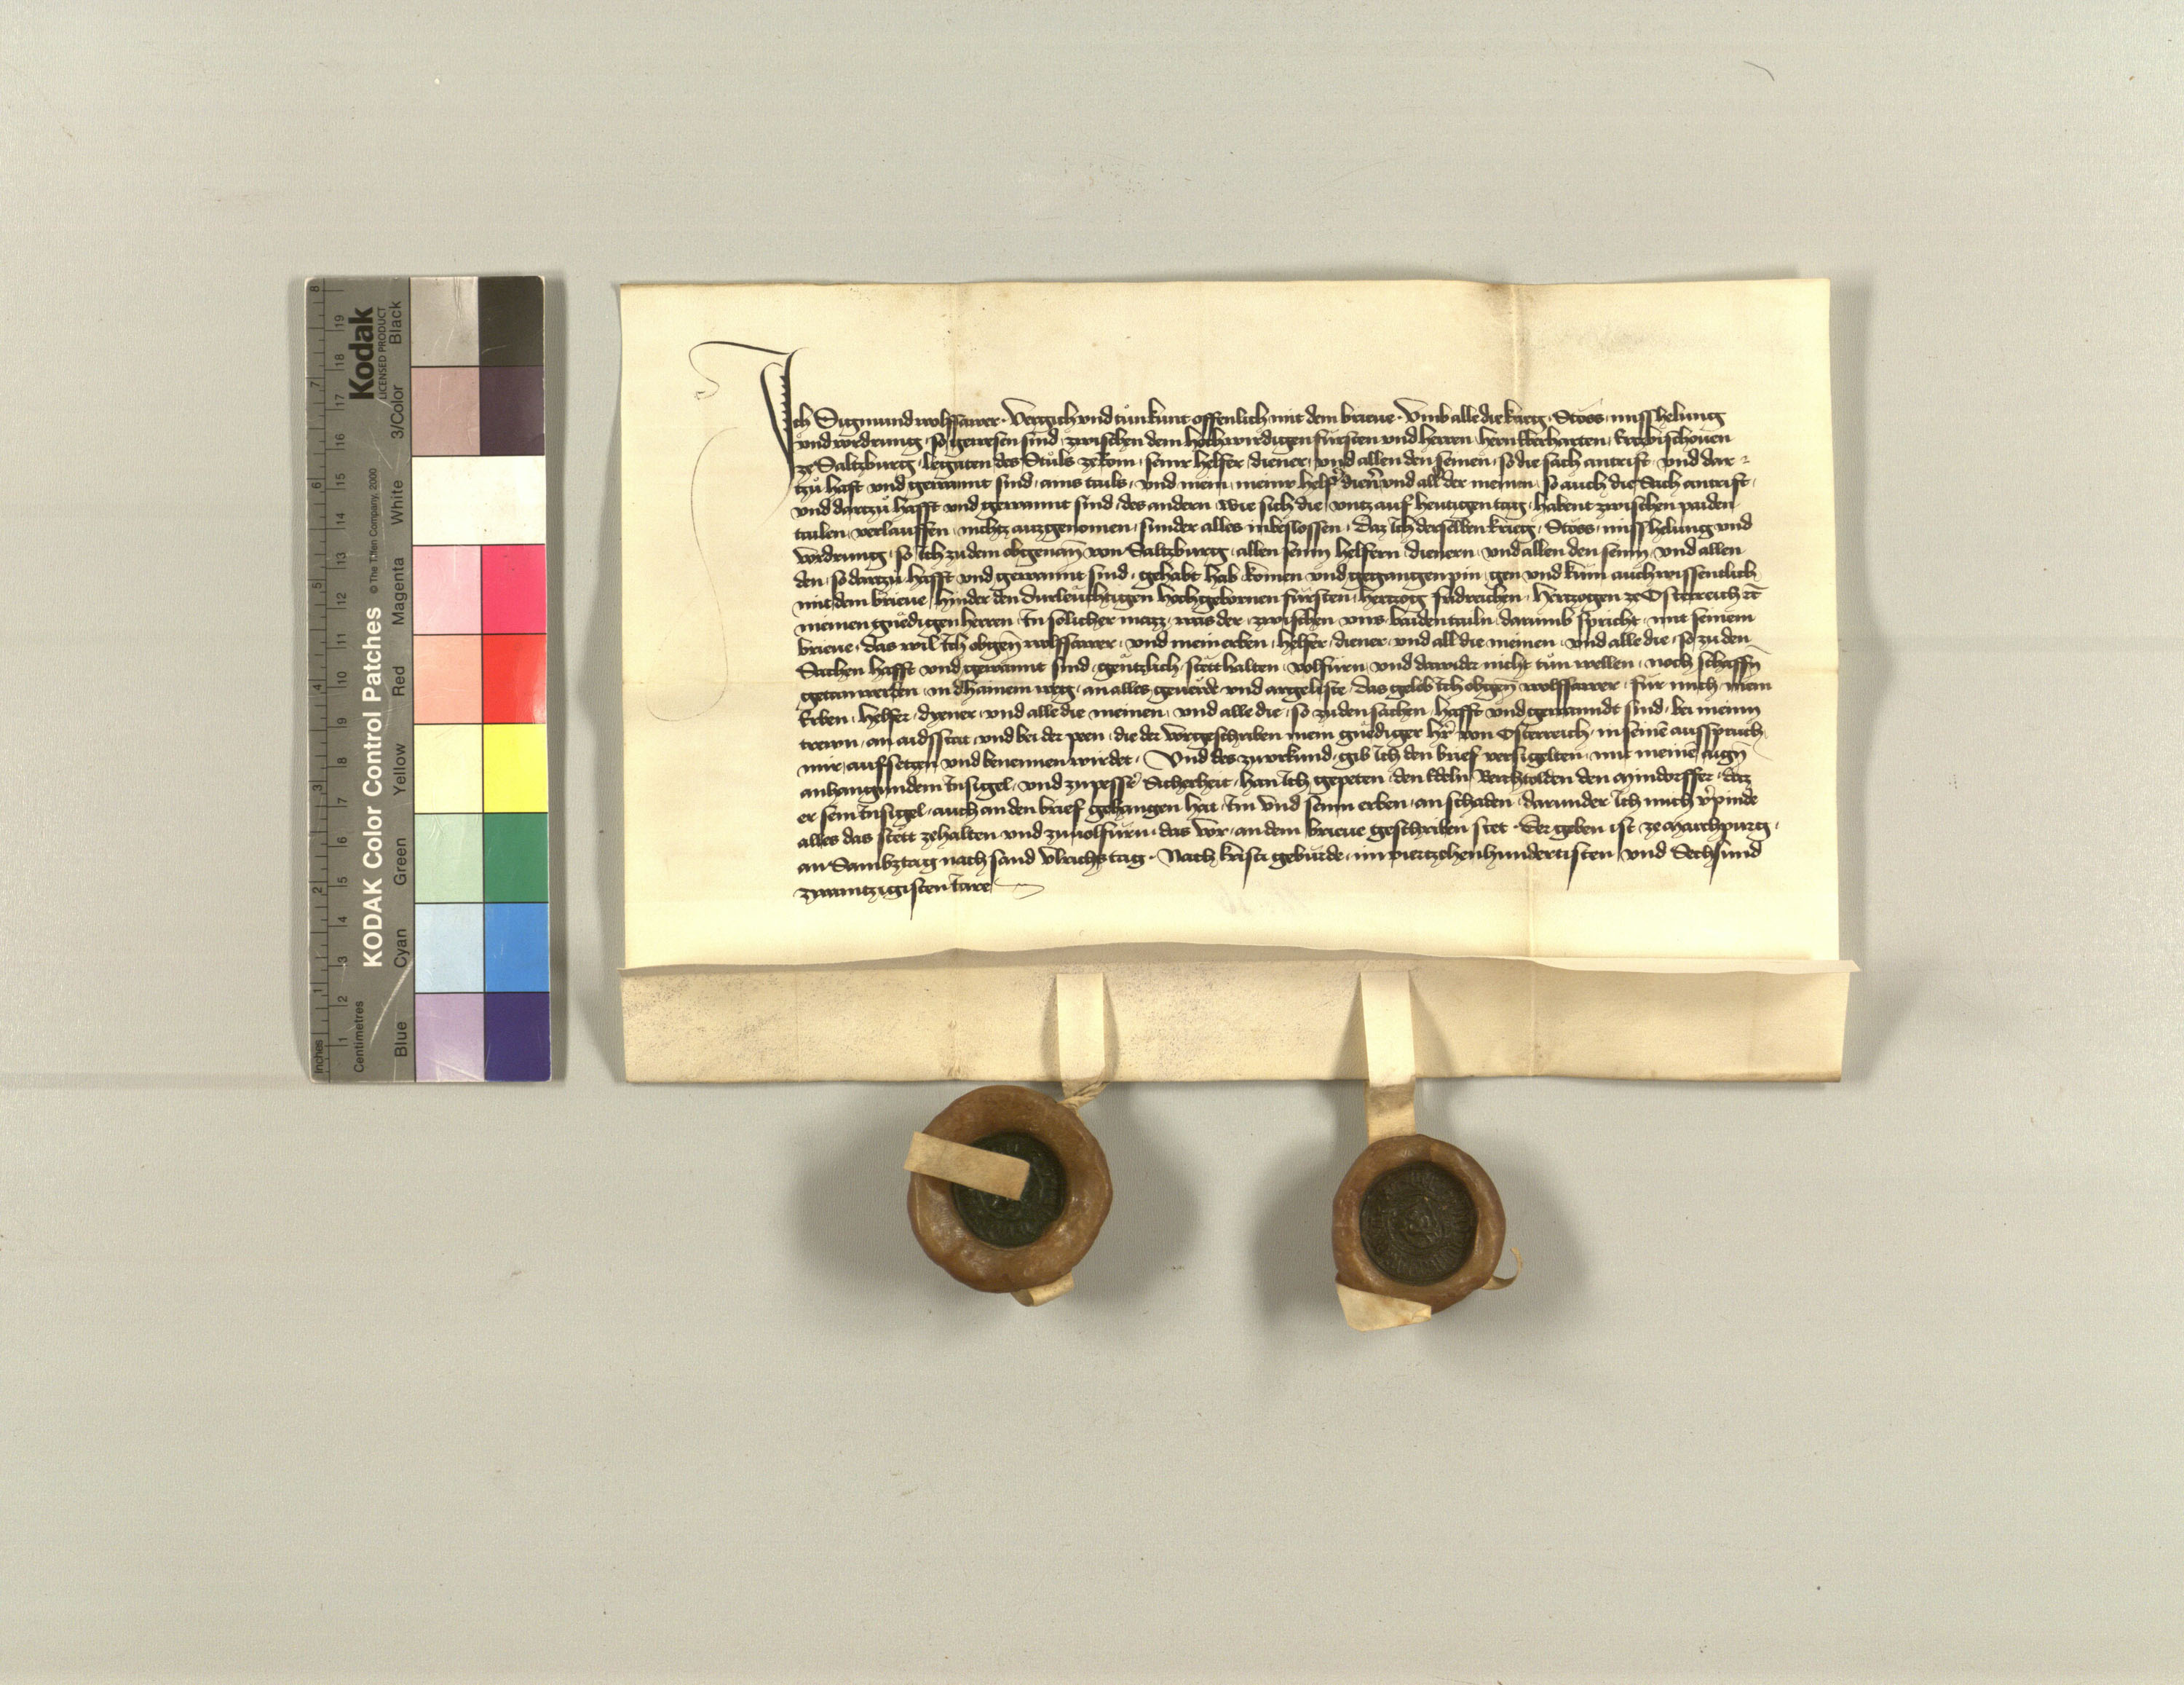 Ich Sigmund wolfsawer · Vergich und tůn kunt offenlich mit dem brieue · Vmb alle die krieg · Stöss · misshelung
und vordrung · so gewesen sind · zwischen dem hochwirdigen fürsten und herren · hern Eberharten · Ertzbischouen
ze Saltzburg · legaten des Stůls ze Rom · seinr helfer · diener · und allen den seinen · so die sach antrift · und dar-
tzů haft und gewannt sind · ains tails · und mein · meinr helfer diener und all der meinen · so auch die Sach antrift ·
und dartzů hafft und gewannt sind · des andern · Wie sich die · vntz auf hewtigen tag · habent zwischen paiden
tailen · verlauffen · nichtz auzgenomen · sunder alles inbeslossen · Daz Ich derselben krieg · Stöss · misshelung und
vordrung · so Ich zu dem obgenan̄ von Saltzburg · allen seinn helfern · dienern · und allen den seinn · und allen
den · so dartzů hafft und gewannt sind · gehabt hab · komen und gegangen pin · gen und kum auch wissentlich
mit dem brieue · hinder den durleuchtigen hochgebornen fürsten · hertzog fridreichen · Hertzogen ze Osterreich ꝛc̄
meinen gnedigen herren · In solicher mazz · was der · zwischen uns · baiden tailn · darumb spricht · mit seinem
brieue · das wil Ich obgen̄ wolfsawer · und mein erben · helfer · diener · und all die meinen · und alle die · so zu den
Sachen hafft und gewannt sind · gentzlich · stett halten · volfürn · und dawider nicht tůn wellen · noch schaffn̄
getan werden · in dhainem weg · an alles geuerde und argeliste · das gelob Ich obgen̄ wolfsawer · für mich · mein
Erben · helfer · dyener · und alle die meinen · und alle die · so zu den sachen · hafft und gewanndt sind · bei meinn
trewn · an aidsstat und bei der peen · die der vorgeschriben mein gnediger h̄r von Osterreich · in seinē ausspruch
mir aufsetzen und benennen wirdet · Und des zu vrkund · gib Ich den brief versigelten · mit meinē aign̄
anhangundem Insigel · und zu pessr̄ Sicherheit · han Ich gepeten · den Edeln Berchtolden den Mindorffer · daz
er sein Insigel · auch an den brief gehangen hat · Im und seinn erben · an schaden · darunder Ich mich v̄pinde
alles das stett zehalten und zuuolfürn · das vor · an dem brieue geschriben stet · Der geben ist ze Marchpurg ·
an Sambztag nach sand Vlrichs tag · Nach Kristi geburde · im viertzehenhundertisten · und Sechsund
zwaintzigisten Jare
KODAK Color Control Patches
© The Tiffen Company, 2000
Kodak
LICENSED PRODUCT
Inches
1 2 3 4 5 6 7 8
Centimetres
1 2 3 4 5 6 7 8 9 10 11 12 13 14 15 16 17 18 19
Blue
Cyan
Green
Yellow
Red
Magenta
White
3/Color
Black